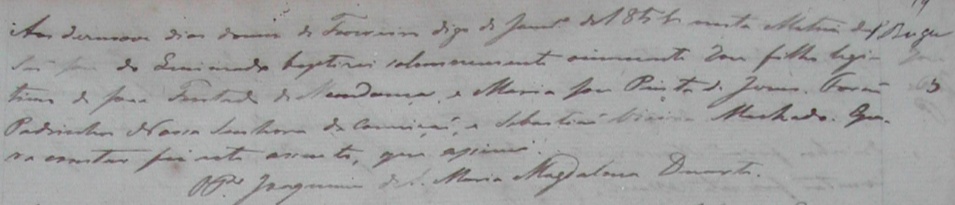 Aos desenove dias do mes de Fevereiro digo de Janrº de 1856 nesta Matriz de S
São José do Queimado baptisei solemnemente innocente filho legi-
timo de José Furtado de Mendonça, e Maria Pinta de Jesus. Forão
Padrinhos Nossa Senhora da Conceição, e Sebastião Vieira Machado. Pa-
ra constar fiz este assento, que assino.
O Pe Joaquim de S. Maria Magdalena Duarte.